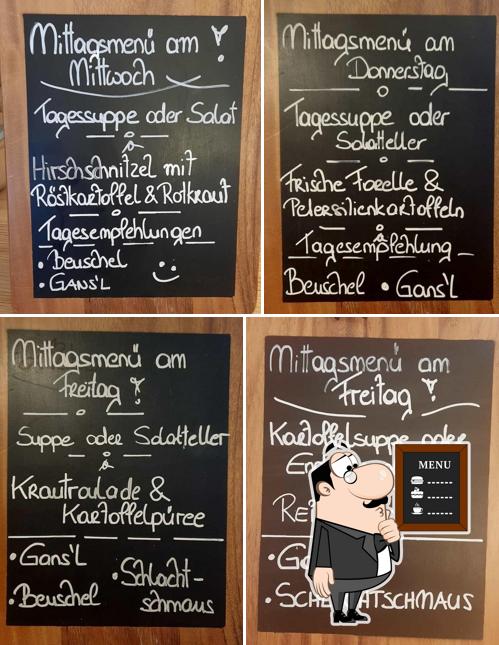 Mittagsmenü am
Mittwoch
Tagessuppe oder Salat
Hirschschnitzel mit
Röstkartoffel & Rotkraut
Tagesempfehlungen
• Beuschel
• GANS'L
Mittagsmenü am
Donnerstag
Tagessuppe oder
Salatteller
Frische Forelle &
Petersilienkartoffeln
Tagesempfehlung
Beuschel • Gans'L
Mittagsmenü am
Freitag
Suppe oder Salatteller
Krautroulade &
Kartoffelpüree
• Gans'L
• Beuschel
• Schlacht-
schmaus
Mittagsmenü am
Freitag
Kartoffelsuppe oder
MENU